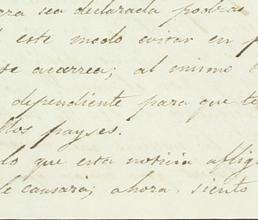 ara sea declarada
este modo evitar en
te acarrea; al mismo
dependiente para que te
llos payses.
lo que esta noticia aflig
le causaria; ahora siento